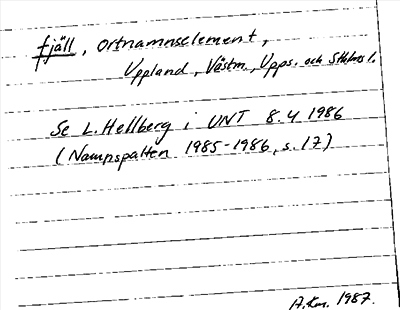 fjäll, ortnamnselement,
Uppland, Västm., Upps. och Sthlms l.
Se L. Hellberg i UNT 8.4 1986
(Namnspalten 1985-1986, s. 17)
A.Km. 1987.